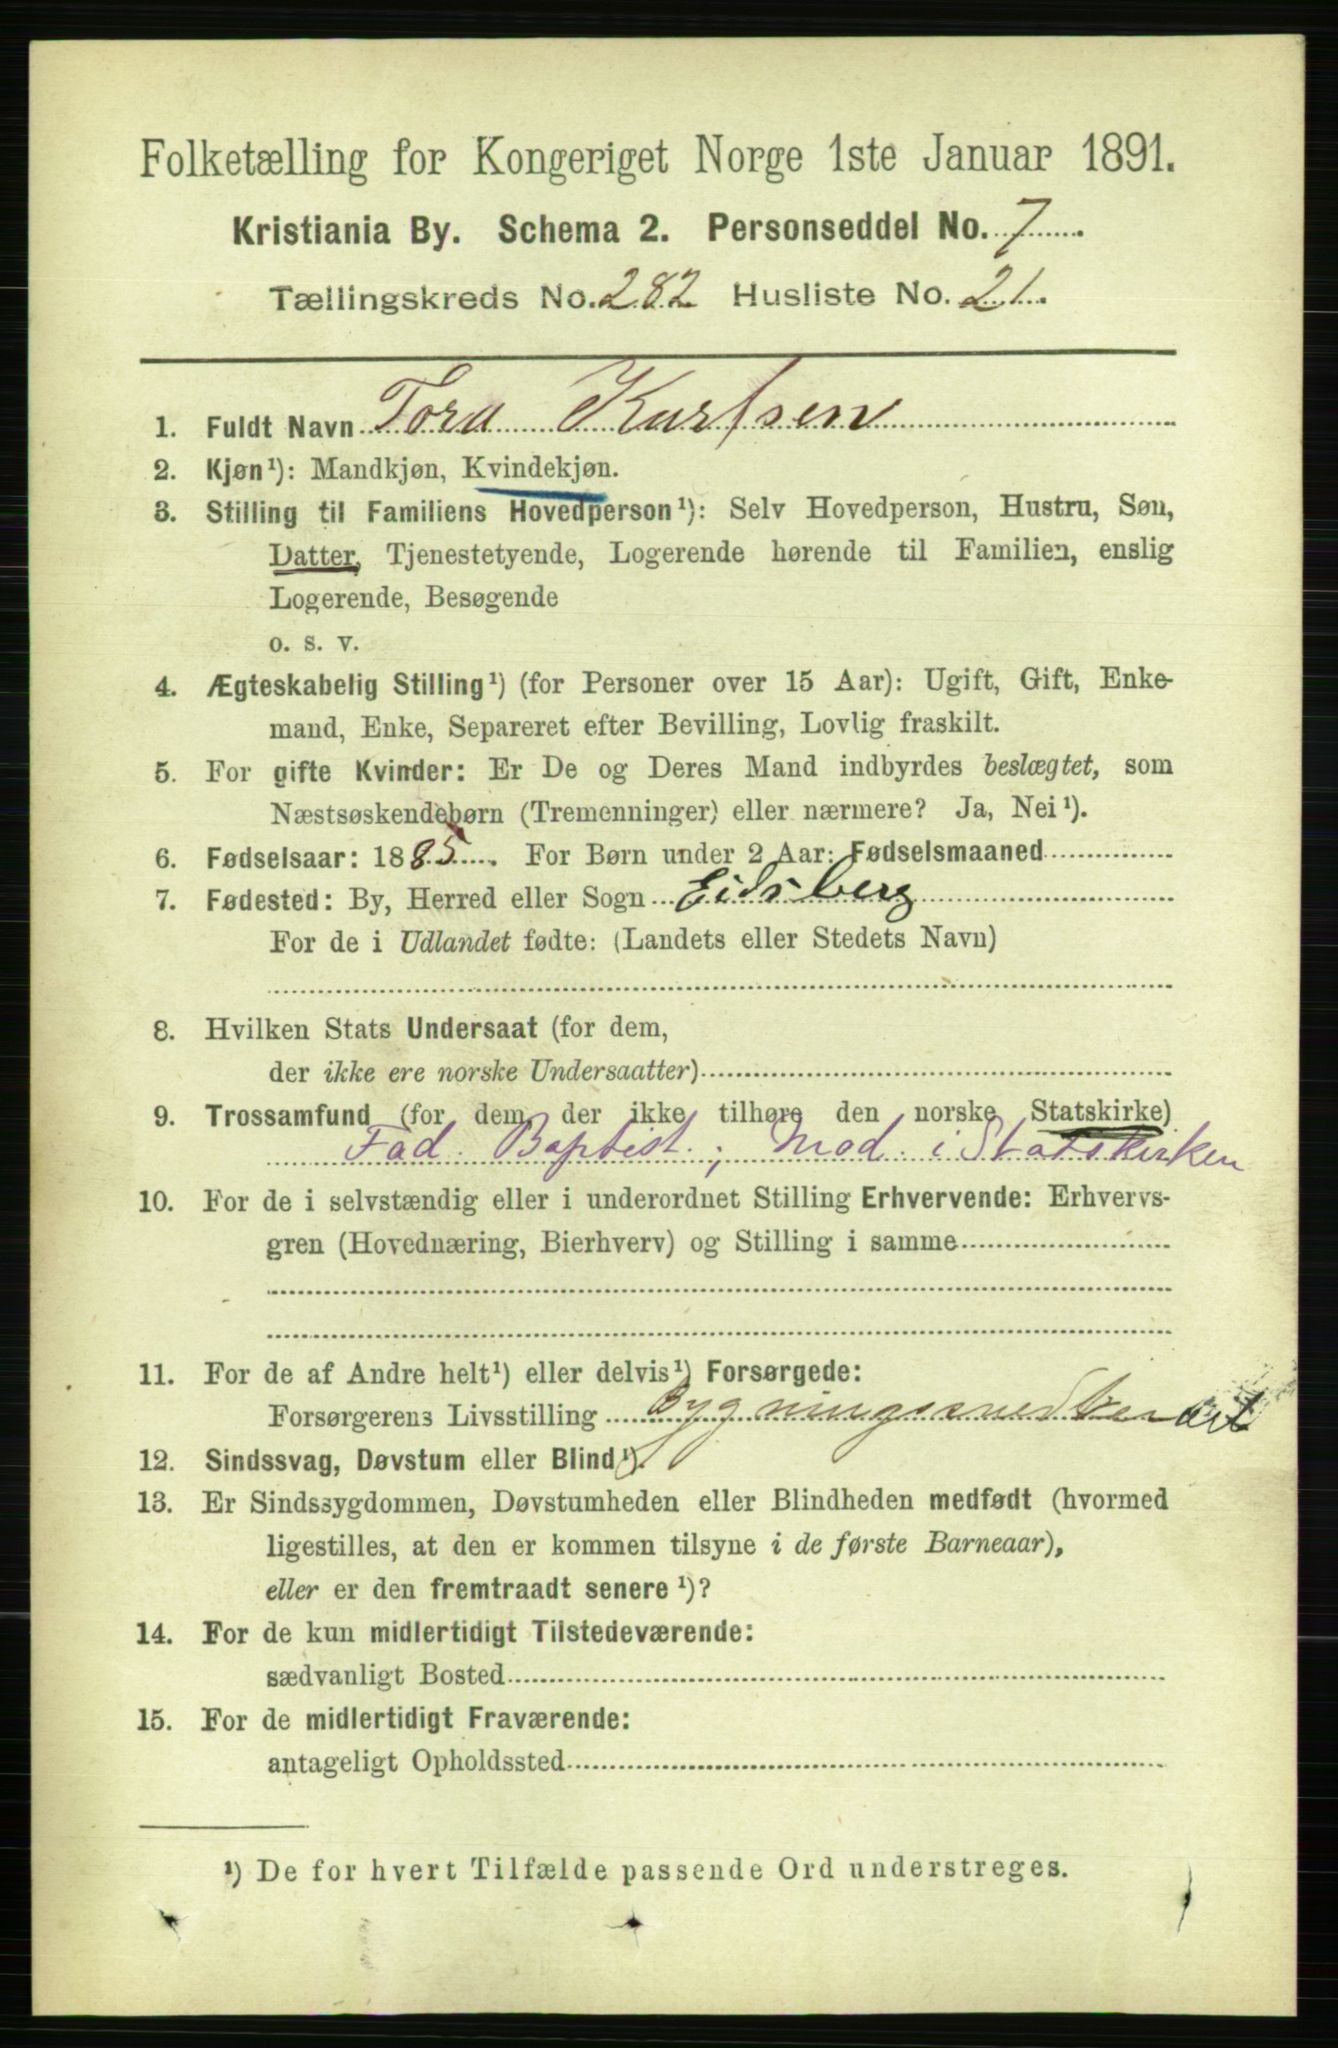 Folketælling for Kongeriget Norge 1ste Januar 1891.
Kristiania By. Schema 2. Personseddel No. 7
Tællingskreds No. 282 Husliste No. 21.
1. Fuldt Navn Tora Kurtsen
2. Kjøn¹): Mandkjøn, Kvindekjøn.
3. Stilling til Familiens Hovedperson¹): Selv Hovedperson, Hustru, Søn,
Datter, Tjenestetyende, Logerende hørende til Familien, enslig
Logerende, Besøgende
o. s. v.
4. Ægteskabelig Stilling¹) (for Personer over 15 Aar): Ugift, Gift, Enke-
mand, Enke, Separeret efter Bevilling, Lovlig fraskilt.
5. For gifte Kvinder: Er De og Deres Mand indbyrdes beslægtet, som
Næstsøskendebørn (Tremenninger) eller nærmere? Ja, Nei¹).
6. Fødselsaar: 1885. For Børn under 2 Aar: Fødselsmaaned
7. Fødested: By, Herred eller Sogn Eidsberg
For de i Udlandet fødte: (Landets eller Stedets Navn)
8. Hvilken Stats Undersaat (for dem,
der ikke ere norske Undersaatter)
9. Trossamfund (for dem, der ikke tilhøre den norske Statskirke)
Fad. Baptist; Mod. i Statskirken
10. For de i selvstændig eller i underordnet Stilling Erhvervende: Erhvervs-
gren (Hovednæring, Bierhverv) og Stilling i samme
11. For de af Andre helt¹) eller delvis¹) Forsørgede:
Forsørgerens Livsstilling Bygningssnedker
12. Sindssvag, Døvstum eller Blind¹).
13. Er Sindssygdommen, Døvstumheden eller Blindheden medfødt (hvormed
ligestilles, at den er kommen tilsyne i de første Barneaar),
eller er den fremtraadt senere¹)?
14. For de kun midlertidigt Tilstedeværende:
sædvanligt Bosted
15. For de midlertidigt Fraværende:
antageligt Opholdssted
¹) De for hvert Tilfælde passende Ord understreges.